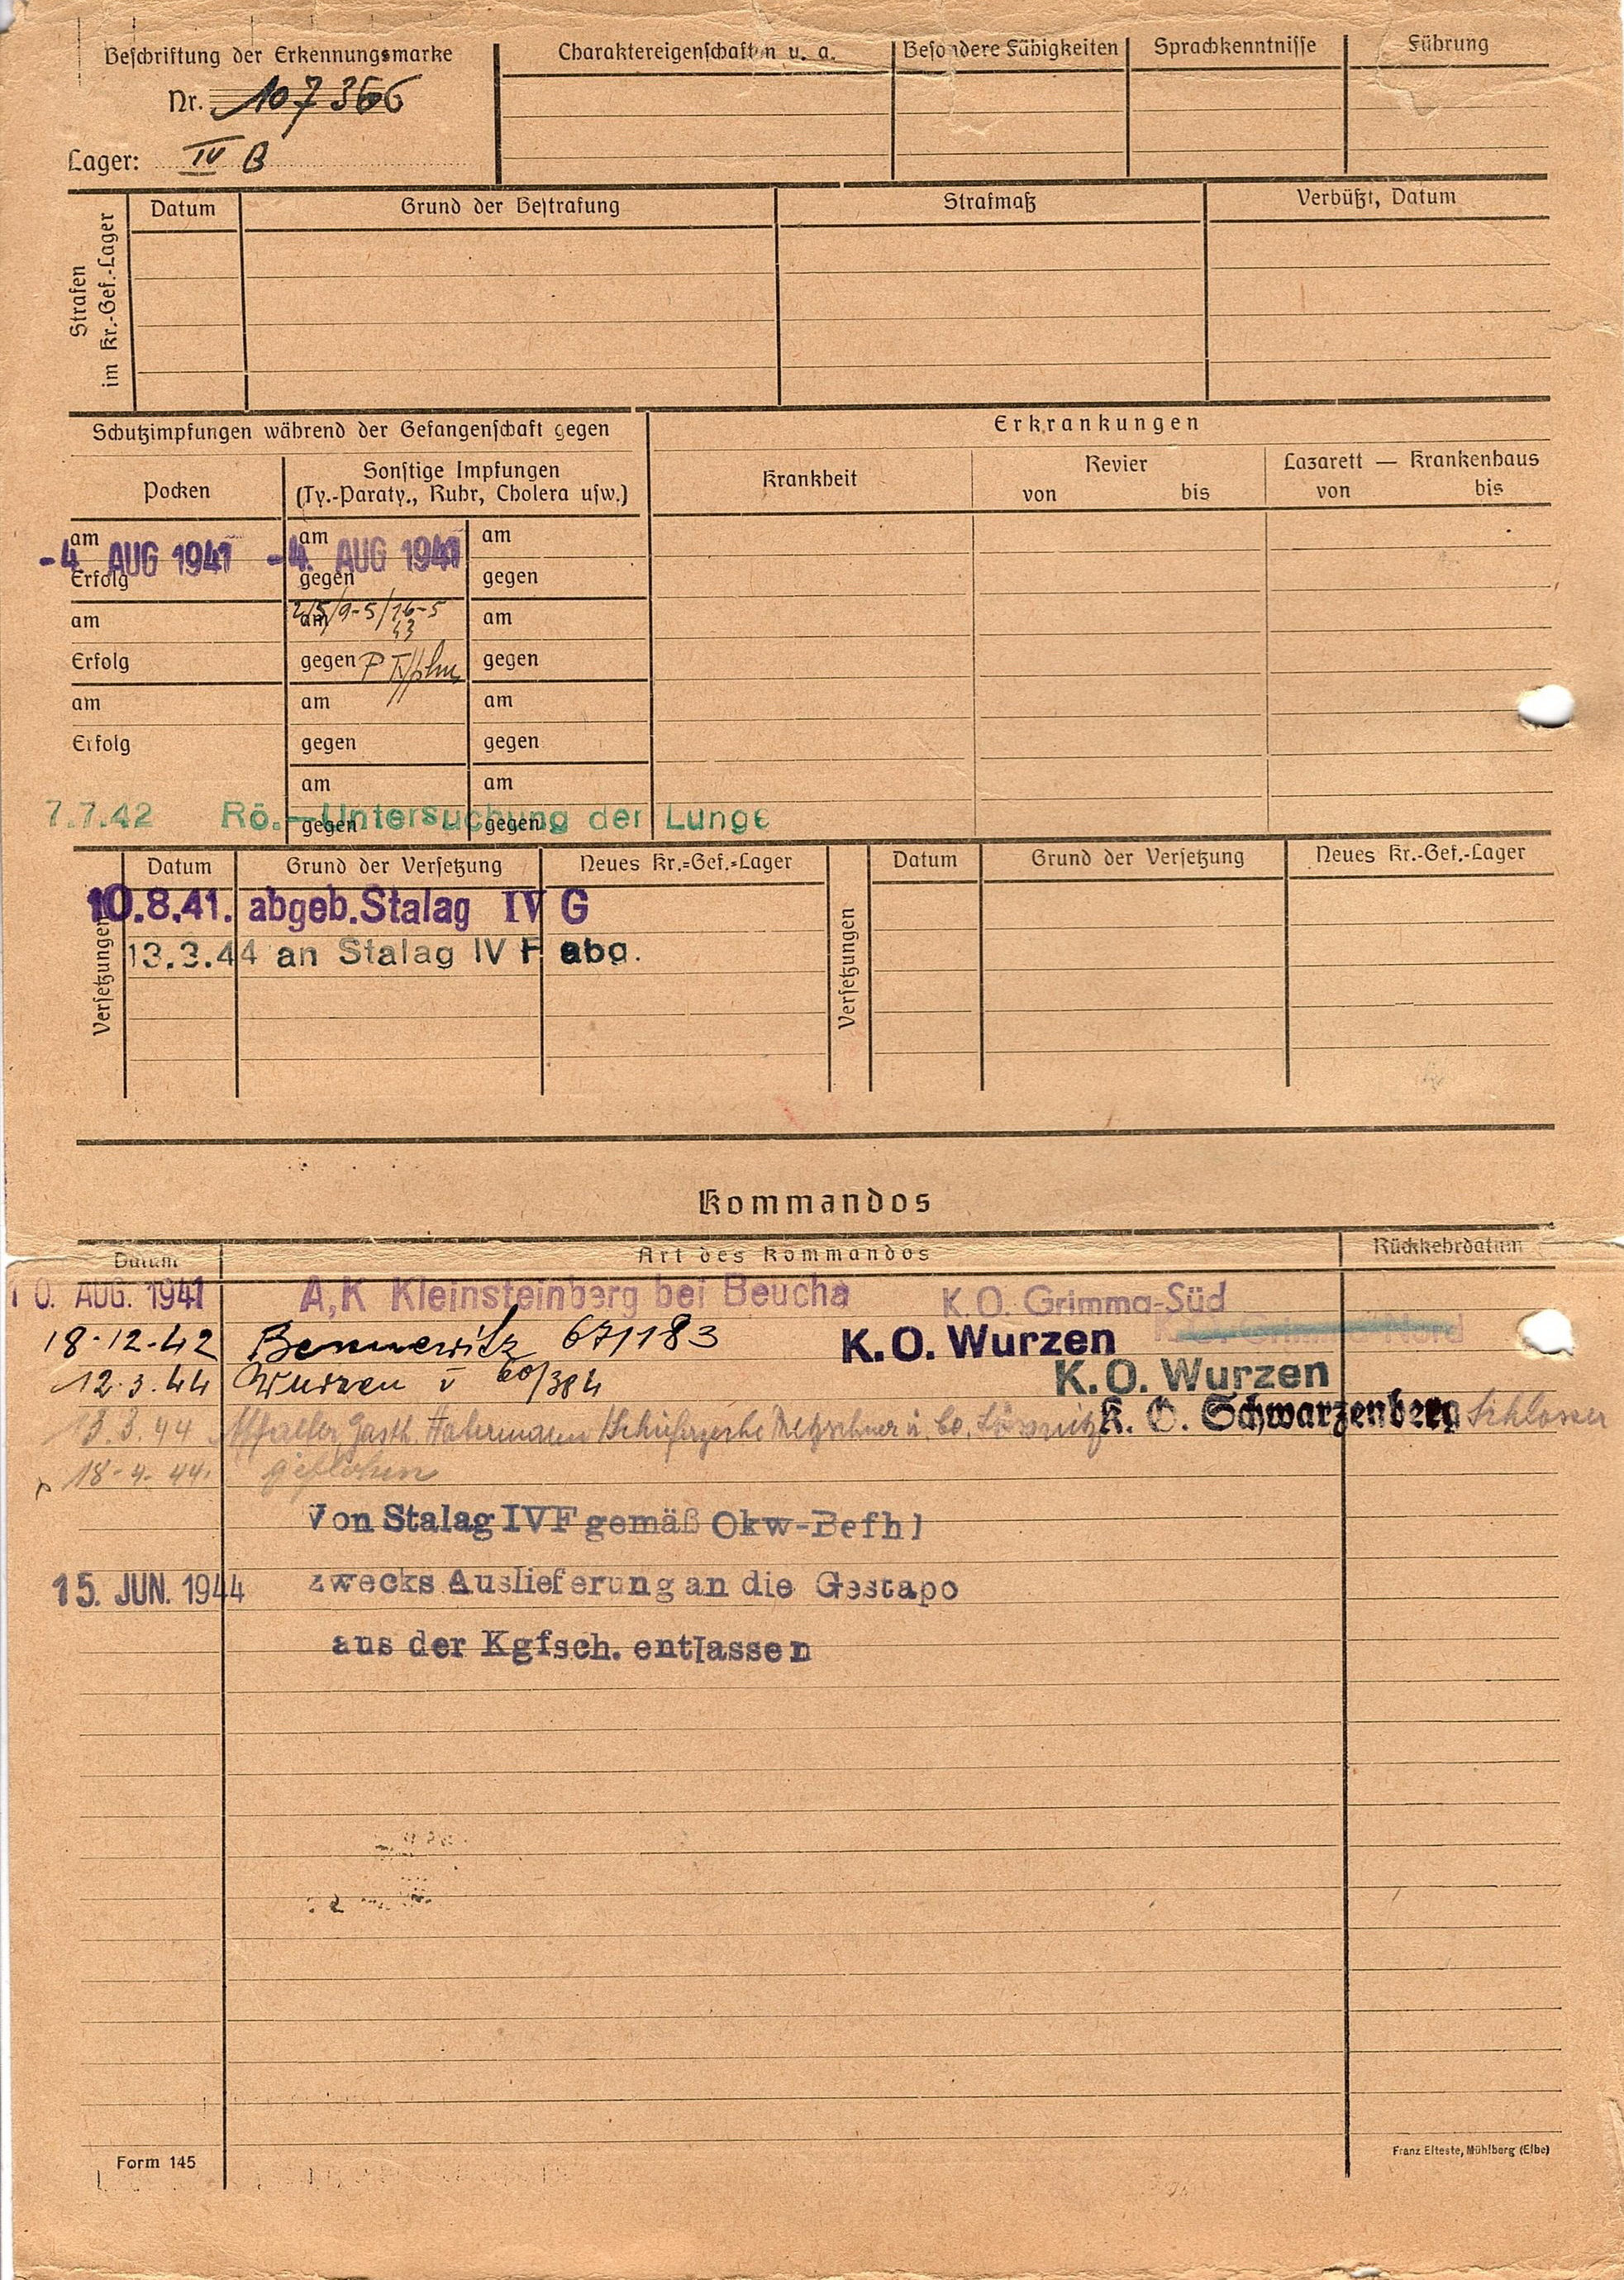 Beschriftung der Erkennungsmarke
Nr. 107366
Lager: IV B
Charaktereigenschaften u. a.
Besondere Fähigkeiten
Sprachkenntnisse
Führung
Strafen im Kr.-Gef.-Lager
Datum
Grund der Bestrafung
Strafmaß
Verbüßt, Datum
Schutzimpfungen während der Gefangenschaft gegen
Erkrankungen
Pocken
Sonstige Impfungen
(Ty.-Paraty., Ruhr, Cholera usw.)
Krankheit
Revier
von bis
Lazarett — Krankenhaus
von bis
am am am
-4. AUG 1941 -4. AUG 1941
Erfolg gegen gegen
am am 2/5/9-5/16-5 am
43
Erfolg gegen gegen
am am am
Erfolg gegen gegen
am am
gegen gegen
7.7.42 Rö.-Untersuchung der Lunge
Versetzungen
Datum Grund der Versetzung Neues Kr.=Gef.=Lager
10.8.41. abgeb. Stalag IV G
13.3.44 an Stalag IV F abg.
Versetzungen
Datum Grund der Versetzung Neues Kr.-Gef.-Lager
Kommandos
Datum Art des Kommandos Rückkehrdatum
10. AUG. 1941 A,K Kleinsteinberg bei Beucha K.O. Grimma-Süd
18-12-42 Bennewitz 671183 K.O. Wurzen
12.3.44 Wurzen v 60/384 K.O. Wurzen
13.3.44 Gasth. Hahermann u. Co. Lössnitz K. O. Schwarzenberg Schlosser
18-4-44. geflohen
Von Stalag IVF gemäß Okw-Befhl
15. JUN. 1944 zwecks Auslieferung an die Gestapo
aus der Kgfsch. entlassen
Form 145
Franz Elteste, Mühlberg (Elbe)